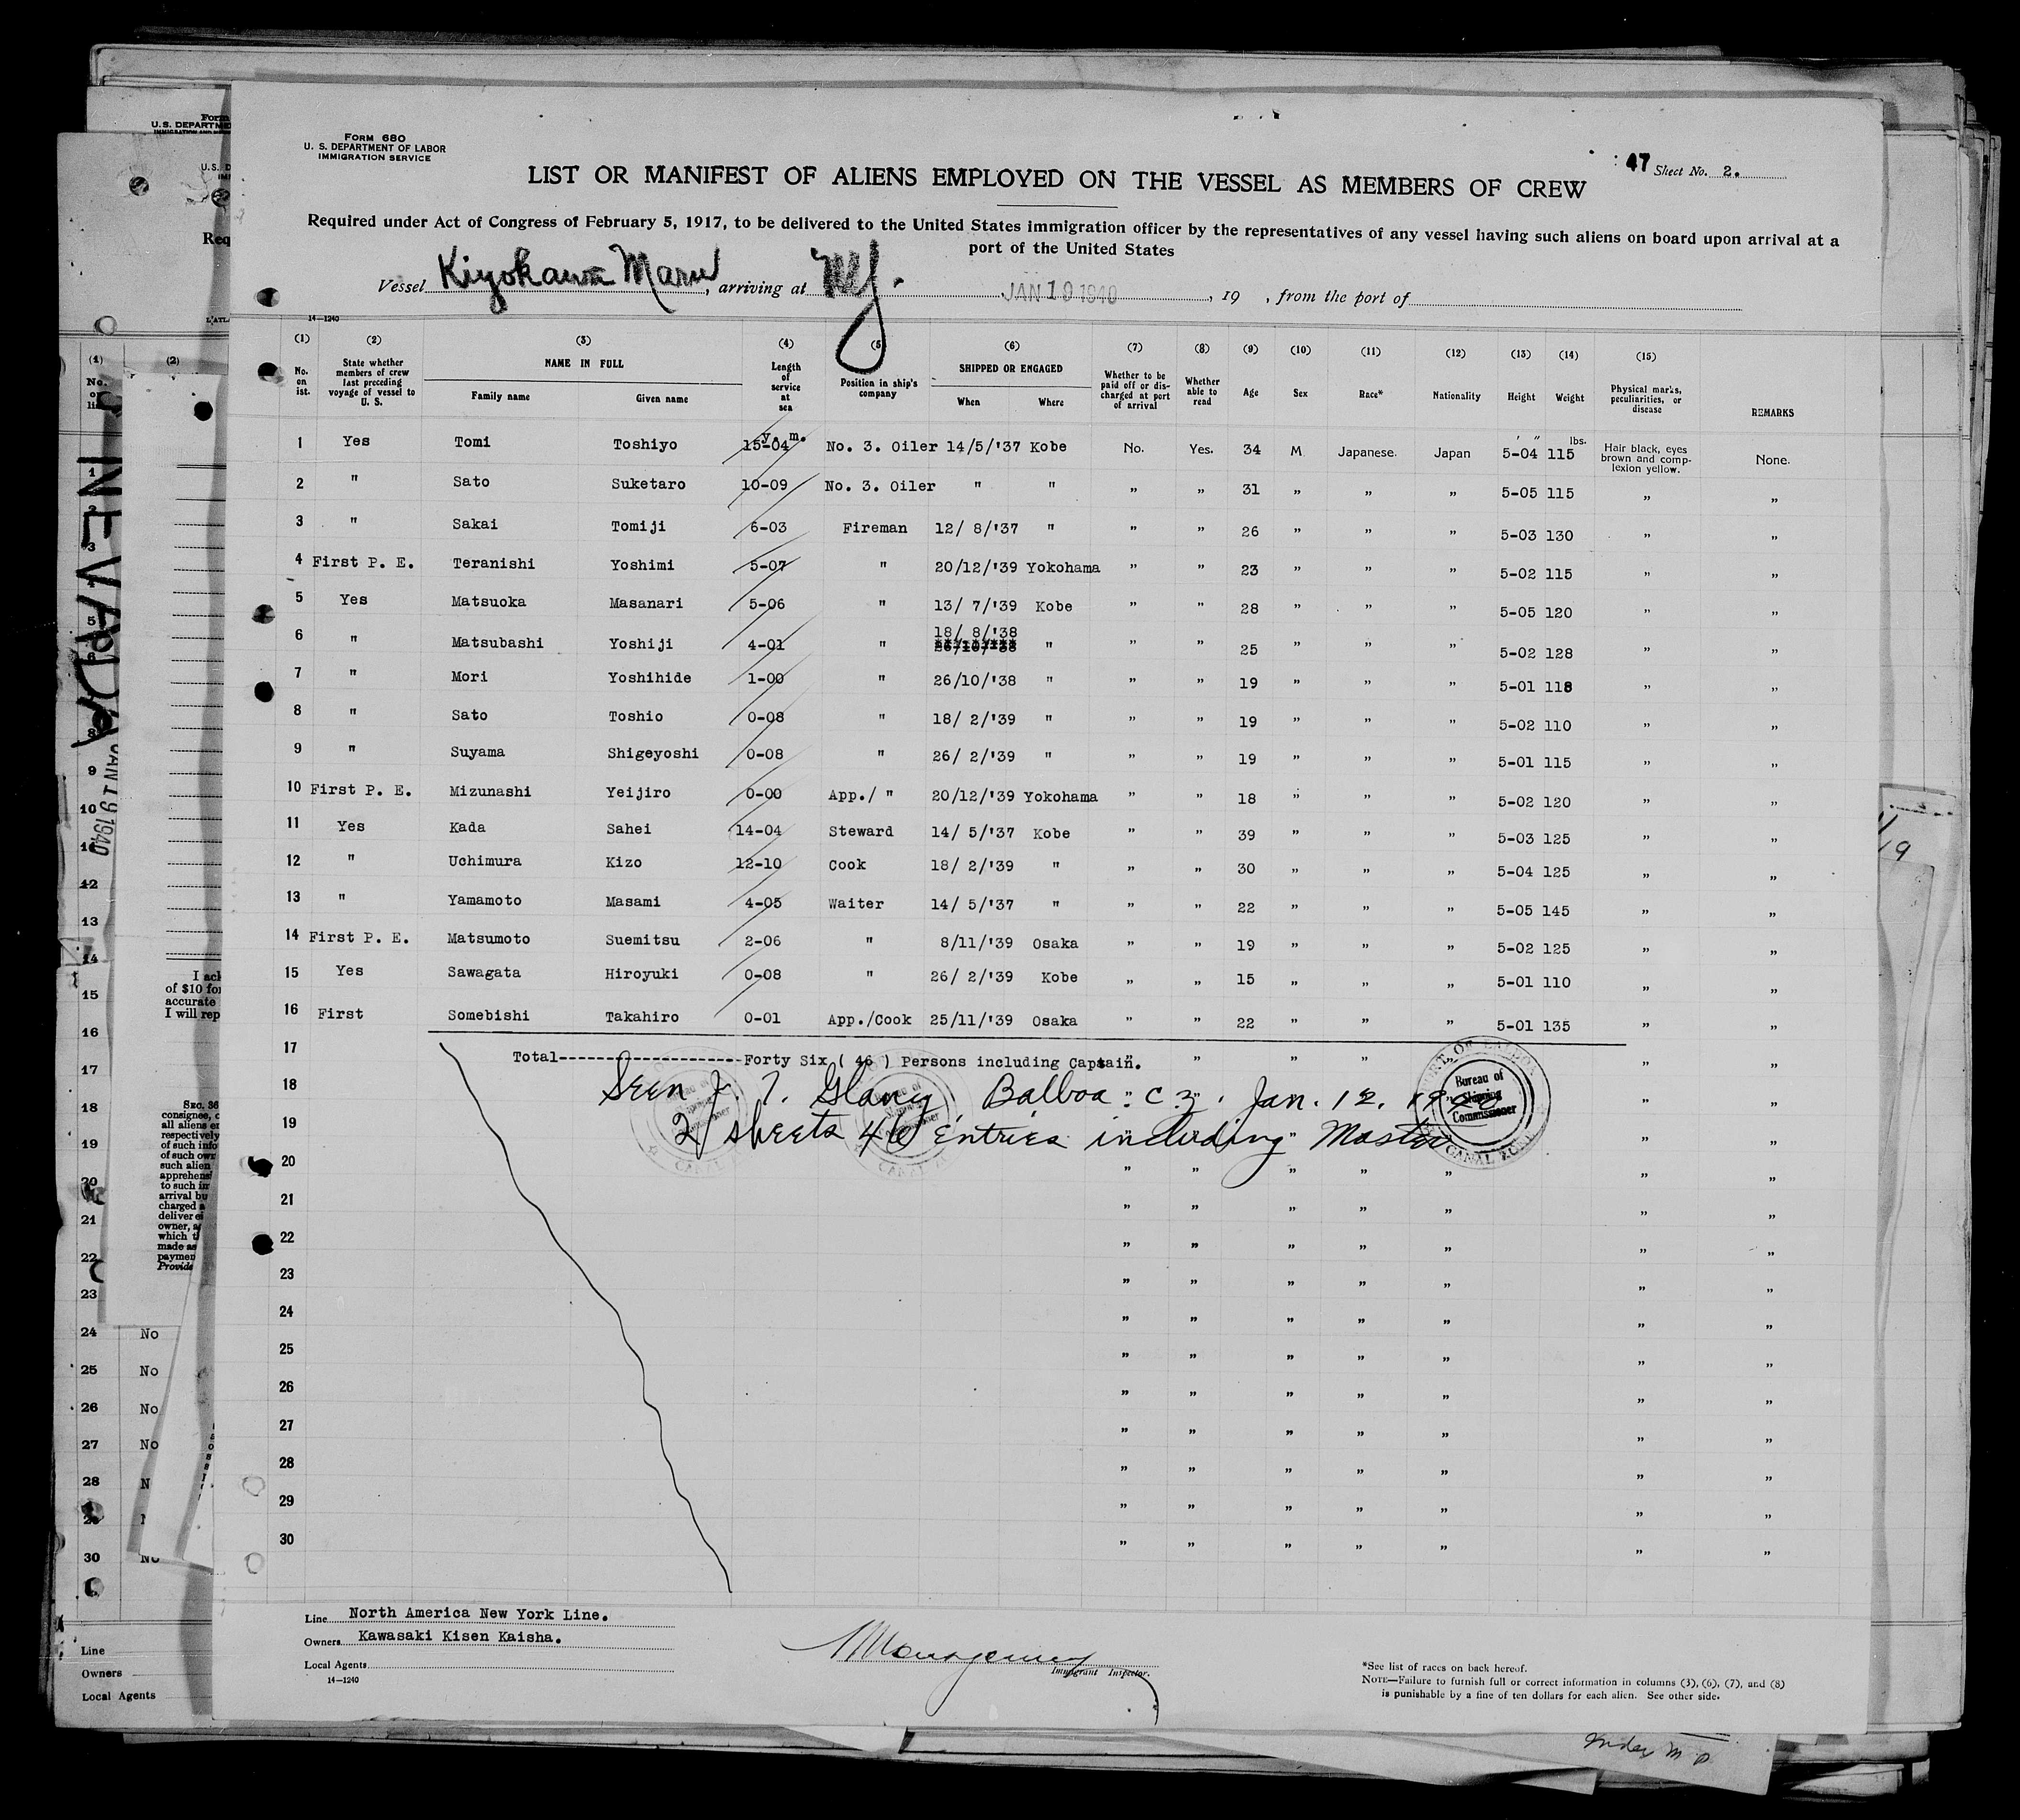 FORM 680
U. S. DEPARTMENT OF LABOR
IMMIGRATION SERVICE
47 Sheet No. 2.
LIST OR MANIFEST OF ALIENS EMPLOYED ON THE VESSEL AS MEMBERS OF CREW
Required under Act of Congress of February 5, 1917, to be delivered to the United States immigration officer by the representatives of any vessel having such aliens on board upon arrival at a
port of the United States
Vessel Kiyokawa Maru, arriving at NY. JAN 19 1940, 19 , from the port of
14—1240
(1) (2) (3) (4) (5) (6) (7) (8) (9) (10) (11) (12) (13) (14) (15)
No. on ist. State whether members of crew last preceding voyage of vessel to U. S. NAME IN FULL Family name Given name Length of service at sea Position in ship's company SHIPPED OR ENGAGED When Where Whether to be paid off or discharged at port of arrival Whether able to read Age Sex Race* Nationality Height Weight Physical marks, peculiarities, or disease REMARKS
y. m. ' " lbs.
1 Yes Tomi Toshiyo 15-04 No. 3. Oiler 14/5/'37 Kobe No. Yes. 34 M Japanese. Japan 5-04 115 Hair black, eyes brown and complexion yellow. None.
2 " Sato Suketaro 10-09 No. 3. Oiler " " " " 31 " " " 5-05 115 " "
3 " Sakai Tomiji 6-03 Fireman 12/ 8/'37 " " " 26 " " " 5-03 130 " "
4 First P. E. Teranishi Yoshimi 5-07 " 20/12/'39 Yokohama " " 23 " " " 5-02 115 " "
5 Yes Matsuoka Masanari 5-06 " 13/ 7/'39 Kobe " " 28 " " " 5-05 120 " "
6 " Matsubashi Yoshiji 4-01 " 18/ 8/'38 " " " 25 " " " 5-02 128 " "
7 " Mori Yoshihide 1-00 " 26/10/'38 " " " 19 " " " 5-01 118 " "
8 " Sato Toshio 0-08 " 18/ 2/'39 " " " 19 " " " 5-02 110 " "
9 " Suyama Shigeyoshi 0-08 " 26/ 2/'39 " " " 19 " " " 5-01 115 " "
10 First P. E. Mizunashi Yeijiro 0-00 App./ " 20/12/'39 Yokohama " " 18 " " " 5-02 120 " "
11 Yes Kada Sahei 14-04 Steward 14/ 5/'37 Kobe " " 39 " " " 5-03 125 " "
12 " Uchimura Kizo 12-10 Cook 18/ 2/'39 " " " 30 " " " 5-04 125 " "
13 " Yamamoto Masami 4-05 Waiter 14/ 5/'37 " " " 22 " " " 5-05 145 " "
14 First P. E. Matsumoto Suemitsu 2-06 " 8/11/'39 Osaka " " 19 " " " 5-02 125 " "
15 Yes Sawagata Hiroyuki 0-08 " 26/ 2/'39 Kobe " " 15 " " " 5-01 110 " "
16 First Somebishi Takahiro 0-01 App./Cook 25/11/'39 Osaka " " 22 " " " 5-01 135 " "
17 Total----------------------Forty Six ( 46 ) Persons including Captain. " " " " "
18 Seen Balboa C. Z. Jan. 12. 1940
19 2 sheets 46 entries including Master
Bureau of
Shipping
Commissioner
CANAL ZONE
20 " " " " " " "
21 " " " " " " "
22 " " " " " " "
23 " " " " " " "
24 " " " " " " "
25 " " " " " " "
26 " " " " " " "
27 " " " " " " "
28 " " " " " " "
29 " " " " " " "
30 " " " " " " "
Line North America New York Line.
Owners Kawasaki Kisen Kaisha.
Local Agents
14—1240
Immigrant Inspector.
*See list of races on back hereof.
NOTE—Failure to furnish full or correct information in columns (3), (6), (7), and (8)
is punishable by a fine of ten dollars for each alien. See other side.
NEVADA
JAN 19 1940
Line
Owners
Local Agents
Index